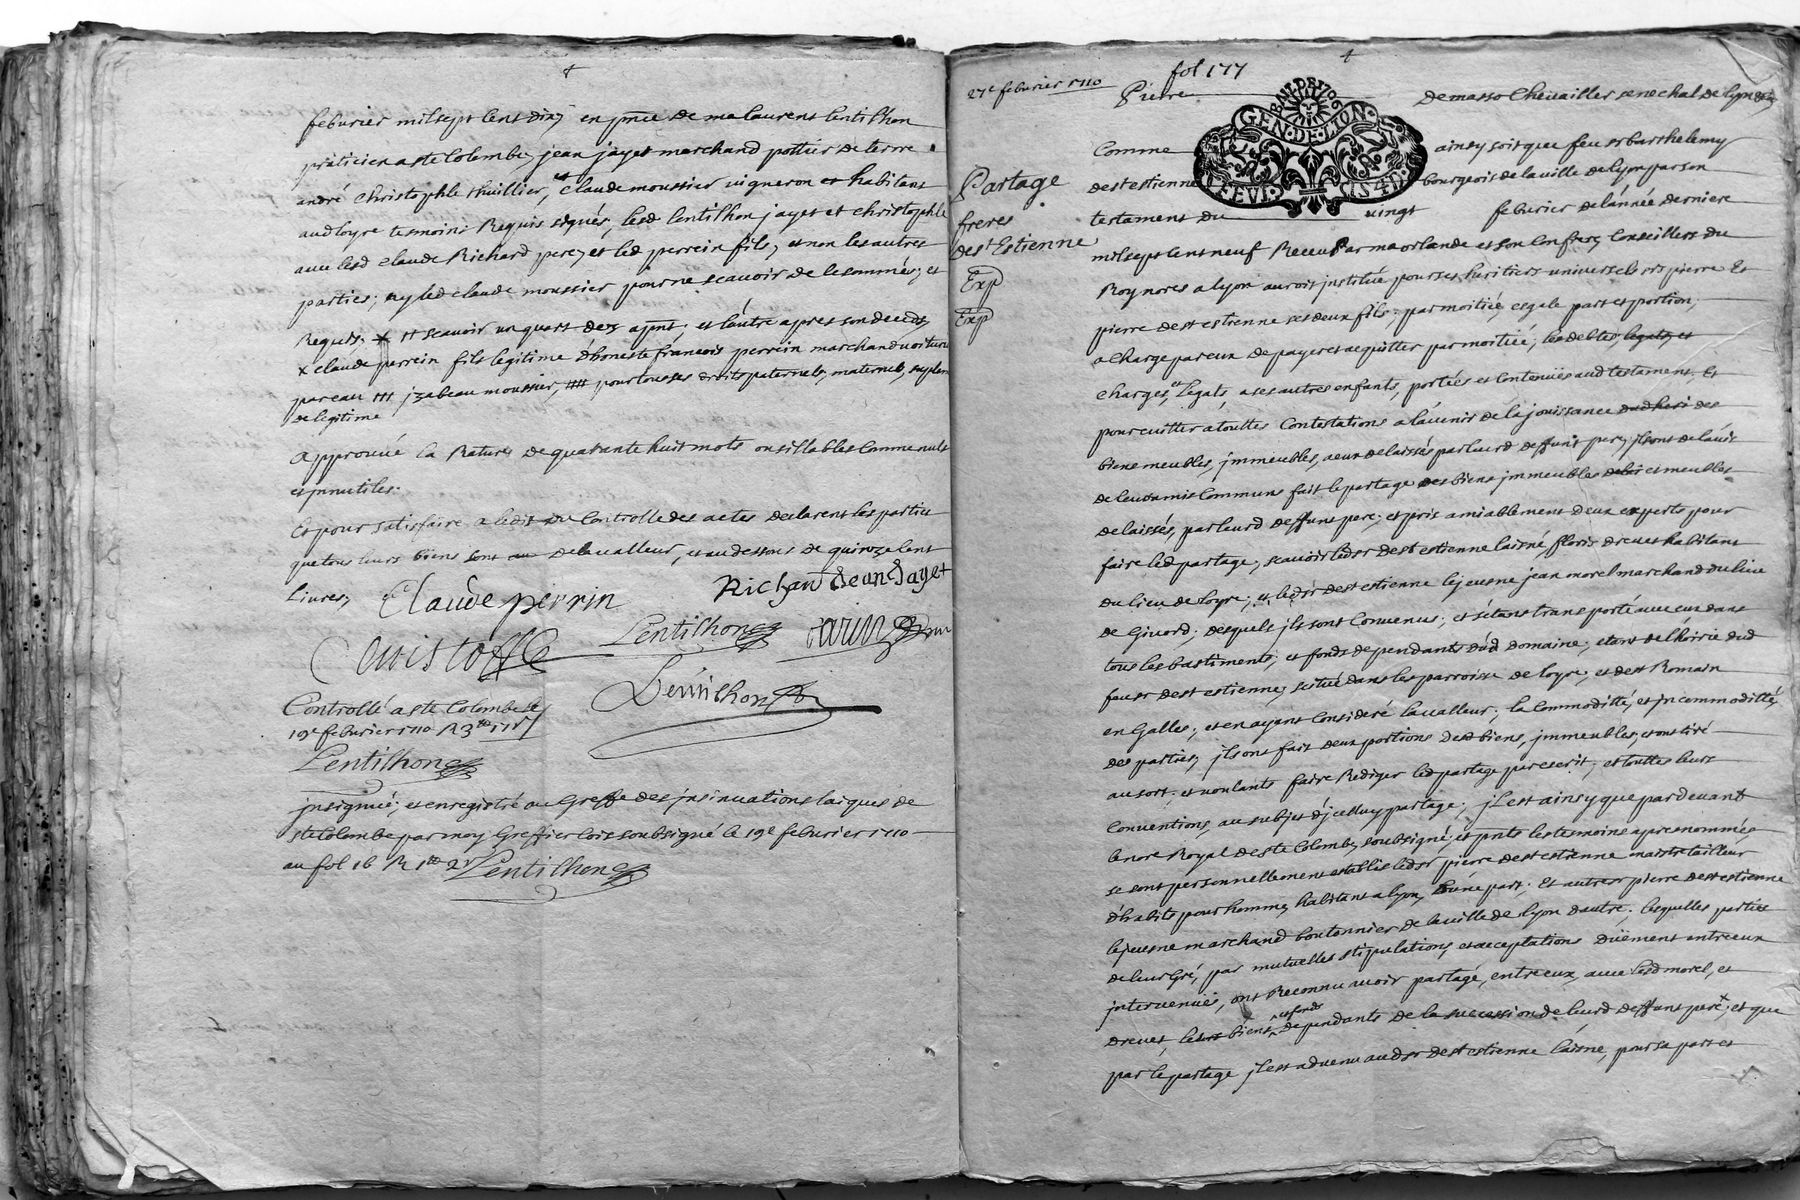 feburier mil sept cent dix, en pnce de me laurent Lentilhon
praticien a ste Colombe, jean jayet marchand pottier de terre
andré christophle thuillier, et claude moussier vigneron et habitans
aud loyre tesmoins Requis signés, lesd Lentilhon jayet et christophle
avec lesd claude Richard pere, et led perrein fils, et non les autres
parties, ny led claude moussier pour ne scavoir de ce sommés, et
Requis, x ++ scavoir un quart dez apnt; et lautre apres son deceds,
x claude perrein fils legitime d'honeste françois perrein marchand voiturier
par eau +++ jzabeau moussier, ++++ pour tous ses droits paternels, maternels, suplem
de legitime
approuvé la Rature de quarante huit mots ou sillables comme nuls
et jnnutiles.
Et pour satisfaire a ledit du Controlle des actes declarent les parties
que tous leurs biens sont au de la valleur, et au dessous de quinze cent
Livres,
Claude perrin
Richard Jean Jayet
Cristofle
Lentilhon
Lentilhon
Controllé a ste Colombe le
19e feburier 1710 R 3
Lentilhon
jnsignué, et enregistré au Greffe des jnsinuations laiques de
ste Colombe par moy Greffier cois soubsigné le 19e feburier 1710
au fol 16 R
Lentilhon
27e feburier 1710
fol 177
Partage
freres
de st Estienne
Exp
Exp
GEN.DE.LION.
Pierre demasso Chevallier senechal de lyon
Comme ainsy soit que feu sr barthelemy
de st estienne bourgeois de la ville de lyon par son
testament du vingt feburier de lannée derniere
mil sept cent neuf Receu par me orlande et son Confrere, Conseillers du
Roy nores a lyon auroit jnstitué pour ses heritiers universels srs pierre Et
pierre de st estienne ses deux fils, par moitié, esgale part et portion,
a charge par eux de payer et acquitter par moitié, les debtes, legats, et
charges, et Legats, a ses autres enfants, portées et Contenües aud testament, Et
pour evitter a touttes Contestations a lavenir de la jouissance dud heri des
biens meubles, jmmeubles, a eux delaissés par leurd deffunt pere, jls ont de lavis
de leurs amis Communs fait le partage des biens jmmeubles et meubles
delaissés, par leurd deffunt pere; et pris amiablement deux experts pour
faire led partage, scavoir led sr de st estienne laisné, floris dreuet habitant
du lieu de loyre, et led sr de st estienne le jeusne jean morel marchand du lieu
de Givord; desquels jls sont Convenus; et s'étant transporté avec eux dans
tous les bastiments, et fonds dependants dud domaine; etant de lhoirie dud
feu sr de st estienne, scitué dans les parroisse de loyre, et de st Romain
en Galles; et en ayant Consideré la valleur, la Commodité, et jncommodité
des parties, jls ont fait deux portions desd biens, jmmeubles, et ont tiré
au sort. et voulants faire Rediger led partage par escrit, et touttes leurs
Conventions, au subjet d'jcelluy partage, jl est ainsy que pardevant
le nore Royal de ste Colombe, soubsigné, et pnts les tesmoins apres nommés
se sont personnellement establis led sr pierre de st estienne maistre tailleur
d'habits pour homme, habitant a lyon, d'une part. Et autre sr pierre de st estienne
le jeusne marchand boutonnier de la ville de lyon d'autre. lesquelles parties
de leur Gré, par mutuelles stipulations, et acceptations düement entre eux
jntervenües, ont Reconnu avoir partagé, entre eux, avec lesd morel, et
dreuet, leurs biens, et fonds dependants de la succession de leurd deffunt pere x, et que
par le partage jl est advenu aud sr de st estienne laisné, pour sa part et